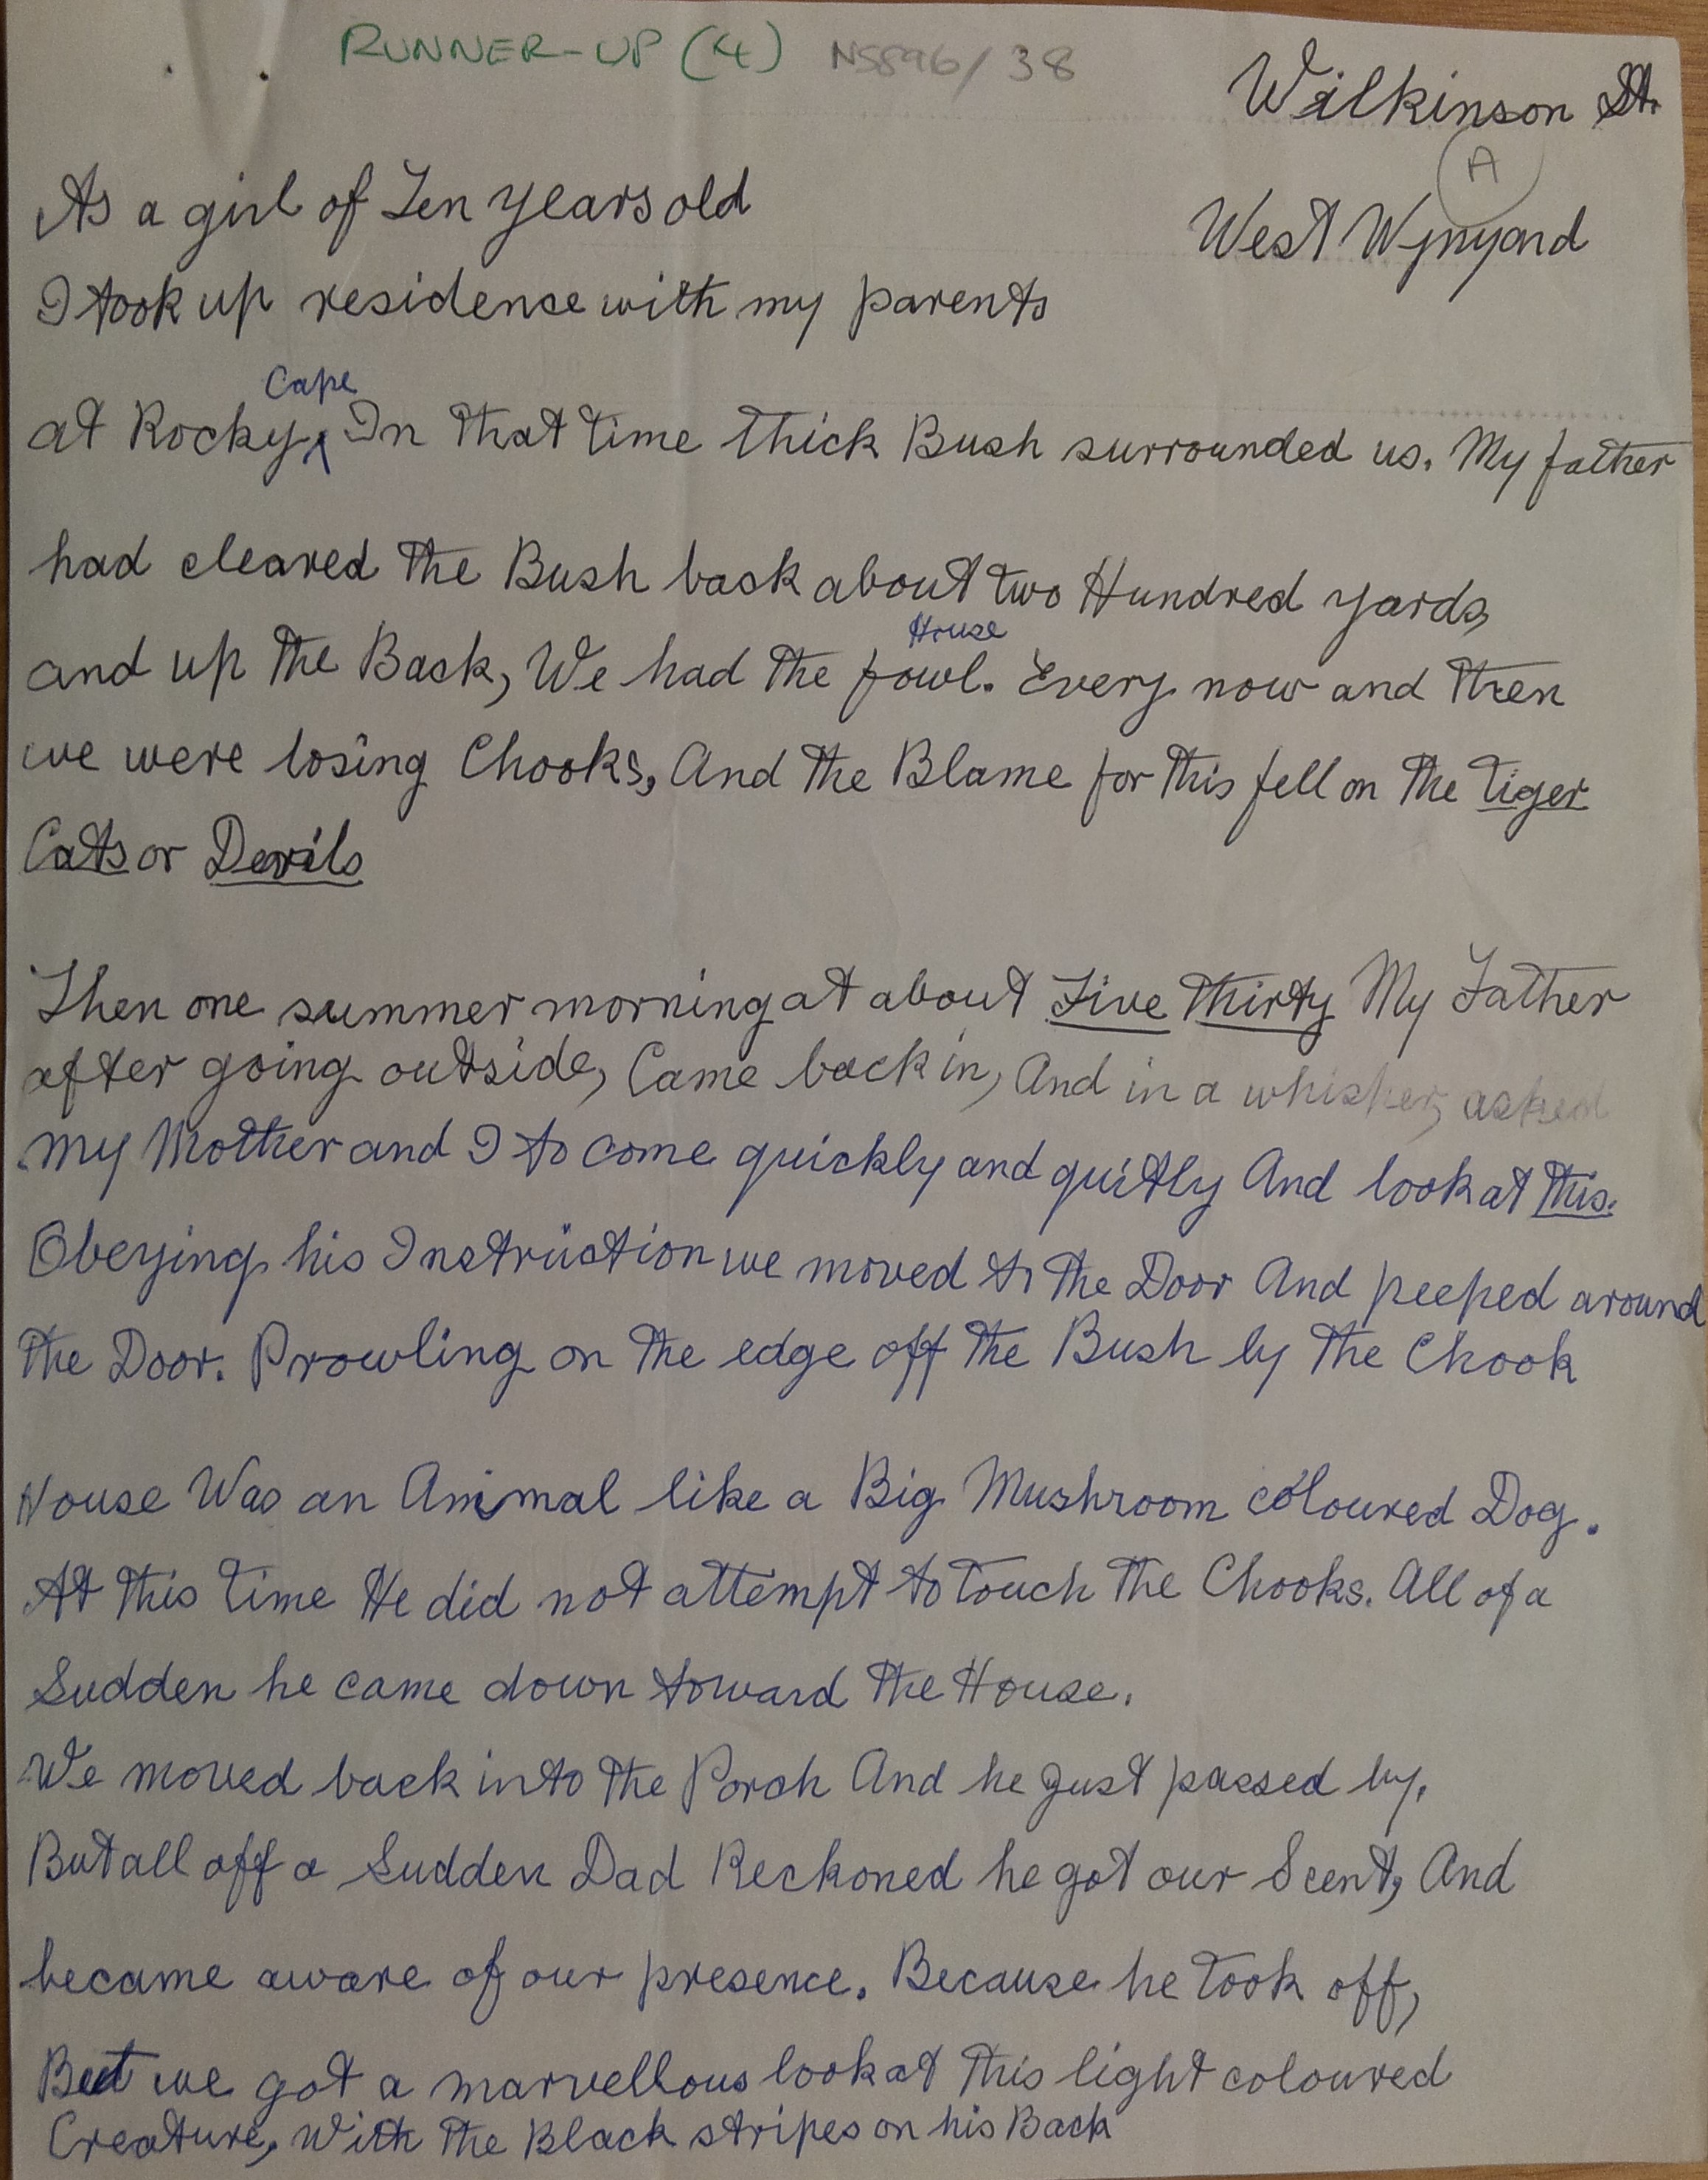 RUNNER-UP (4) NS896/38
Wilkinson St.
A
West Wynyard
As a girl of Ten years old
I took up residence with my parents
at Rocky Cape In that time thick Bush surrounded us. My father
had cleared the Bush back about two Hundred yards,
and up the Back, We had the fowl House. Every now and then
we were losing Chooks, And the Blame for this fell on the Tiger
Cats or Devils
Then one summer morning at about Five Thirty My Father
after going outside, Came back in, And in a whisper, asked
my Mother and I to come quickly and quitly And look at this.
Obeying his Instruction we moved to the Door And peeped around
the Door. Prowling on the edge off the Bush by the Chook
House Was an Animal like a Big Mushroom coloured Dog.
At this time He did not attempt to touch the Chooks. All of a
Sudden he came down toward the House.
We moved back into the Porch And he Just passed by.
But all off a Sudden Dad Reckoned he got our Scent, And
became aware of our presence. Because he took off,
But we got a marvellous look at this light coloured
Creature, With the Black stripes on his Back